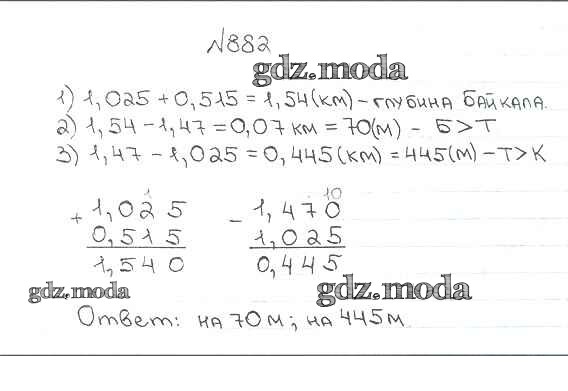 №882
gdz.moda
1) 1,025 + 0,515 = 1,54 (км) – глубина Байкала.
2) 1,54 – 1,47 = 0,07 км = 70 (м) – Б > Т
3) 1,47 – 1,025 = 0,445 (км) = 445 (м) – Т > К
1 10
+ 1,025 – 1,470
0,515 1,025
1,540 0,445
gdz.moda gdz.moda
Ответ: на 70 м; на 445 м